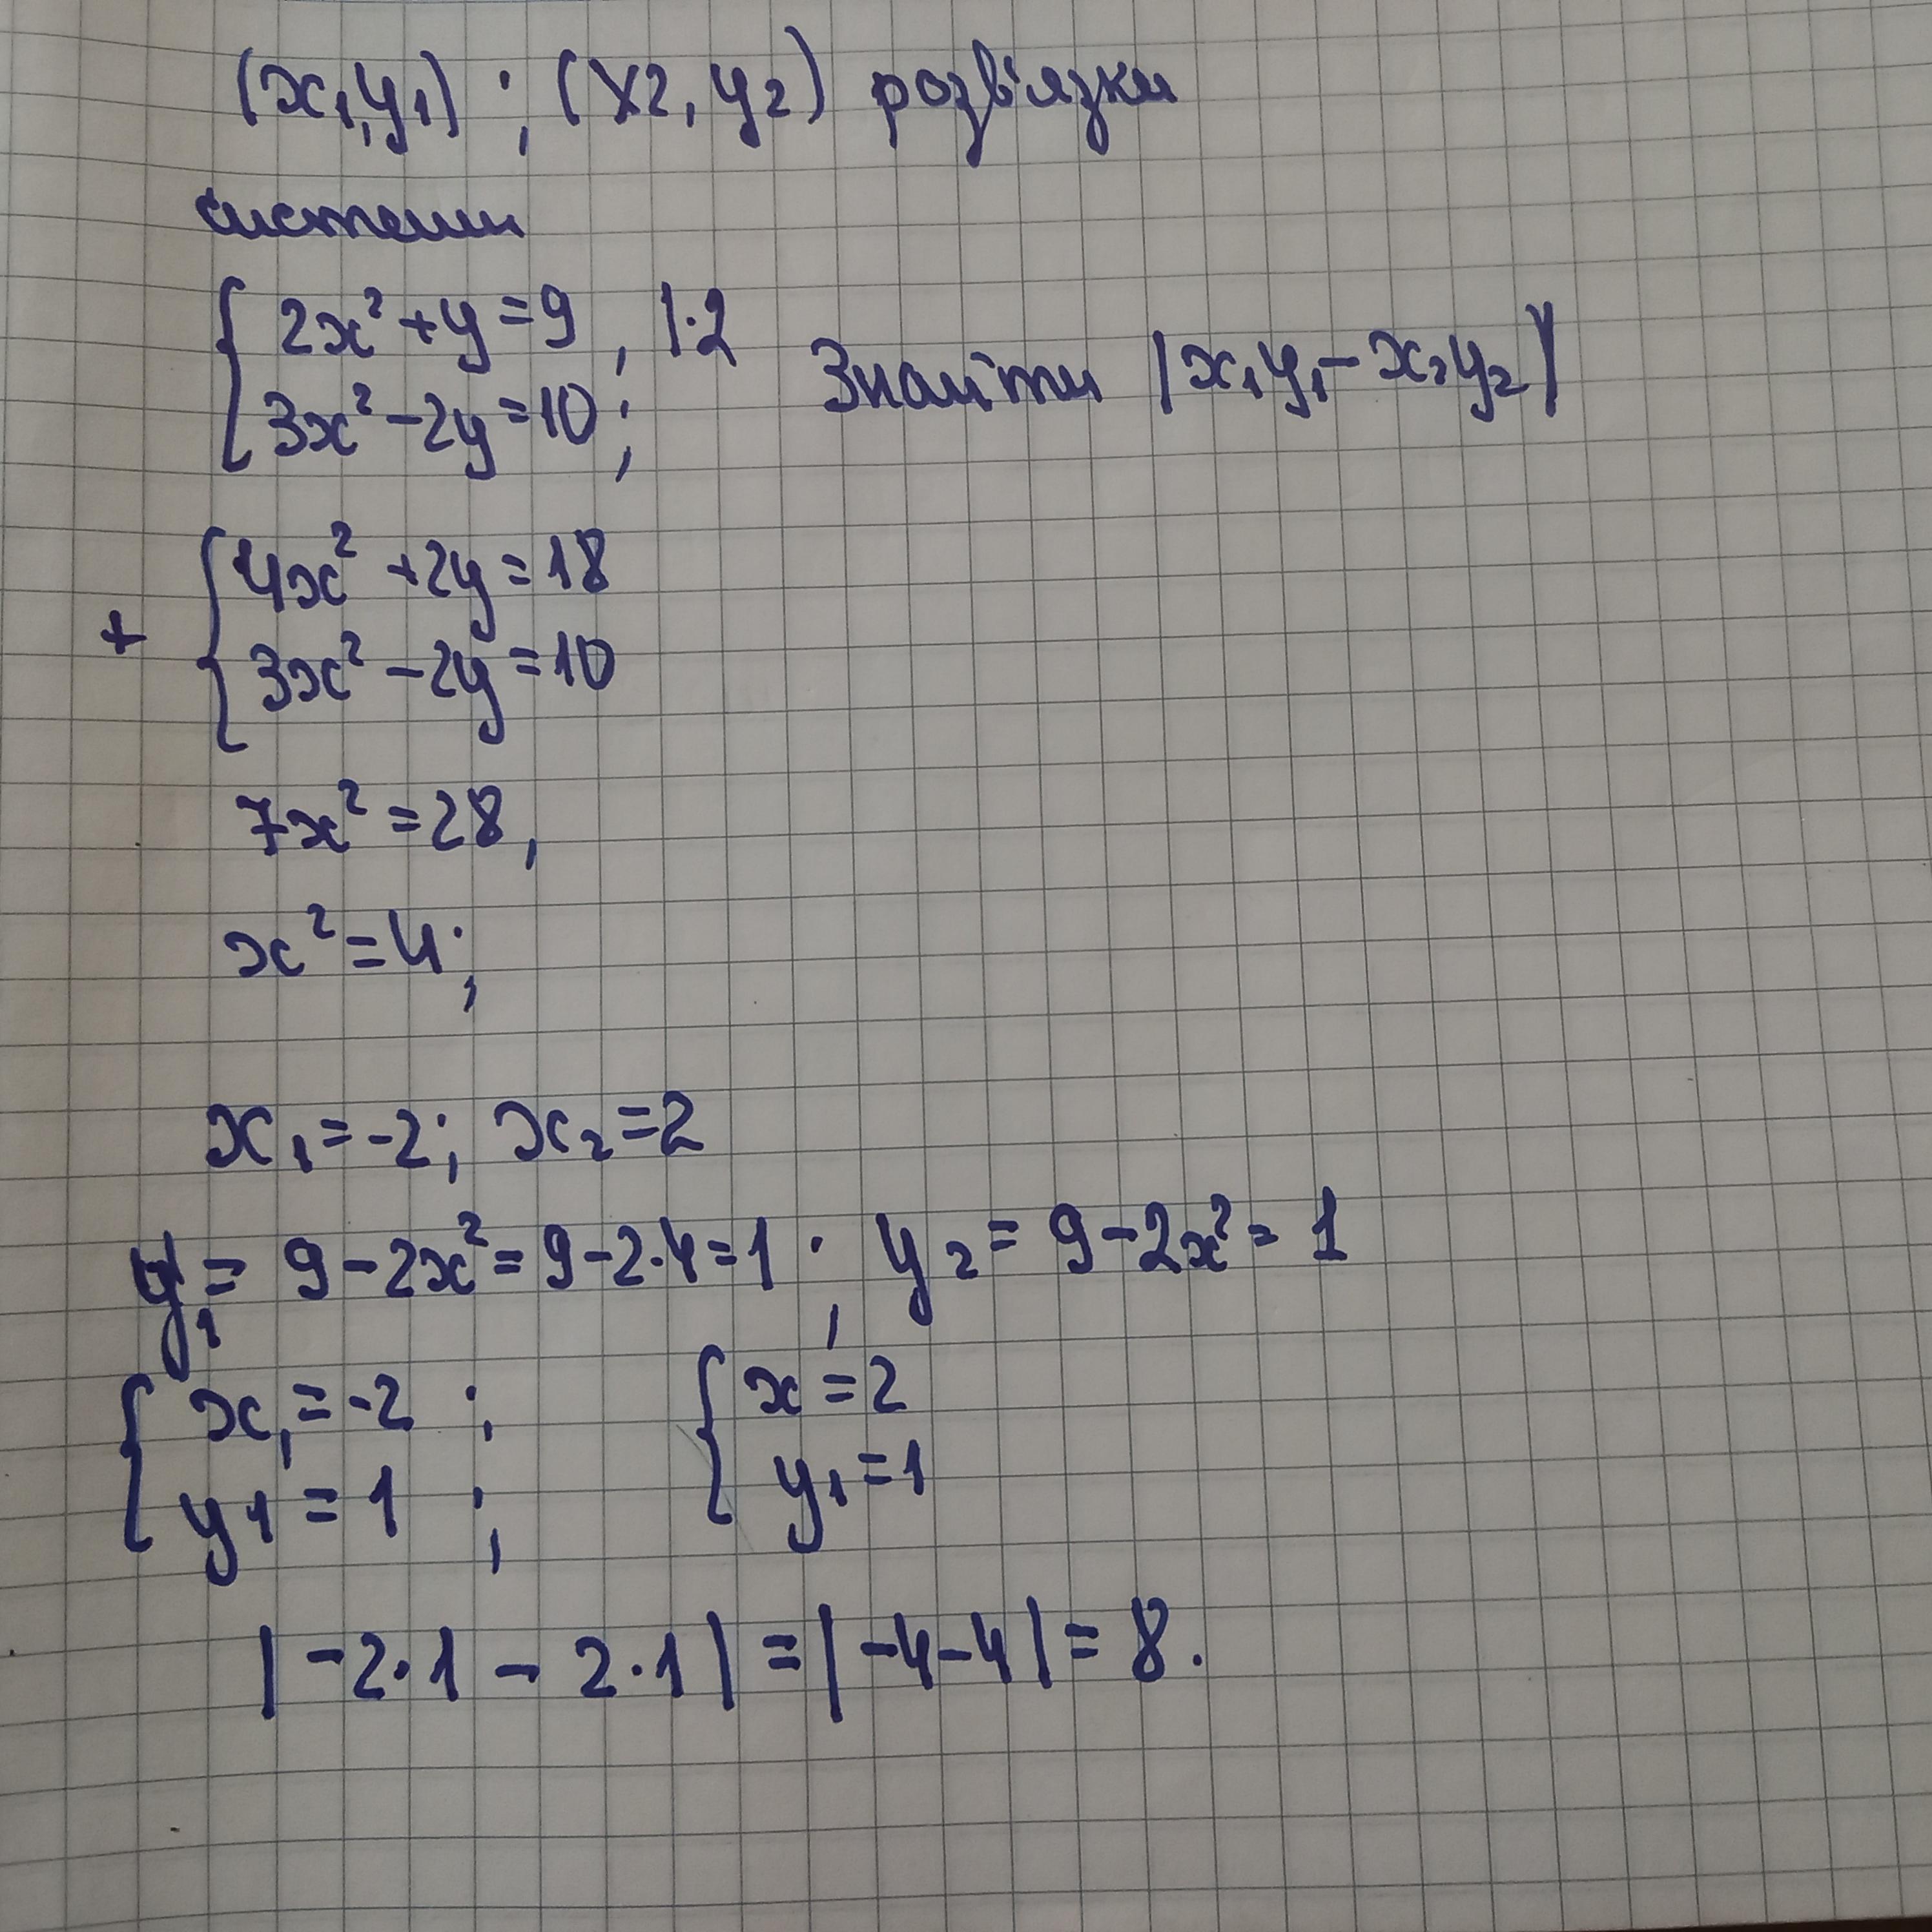 (x₁,y₁) ; (x2, y2) розв'язки
системи
{ 2x² + y = 9 , |·2
3x² - 2y = 10 ; Знайти |x₁y₁ - x₂y₂|
+ { 4x² + 2y = 18
3x² - 2y = 10
7x² = 28,
x² = 4;
x₁ = -2; x₂ = 2
y₁ = 9 - 2x² = 9 - 2·4 = 1 ; y₂ = 9 - 2x² = 1
{ x₁ = -2 ; { x = 2
y1 = 1 ; y₁ = 1
| -2·1 - 2·1 | = | -4 - 4 | = 8.